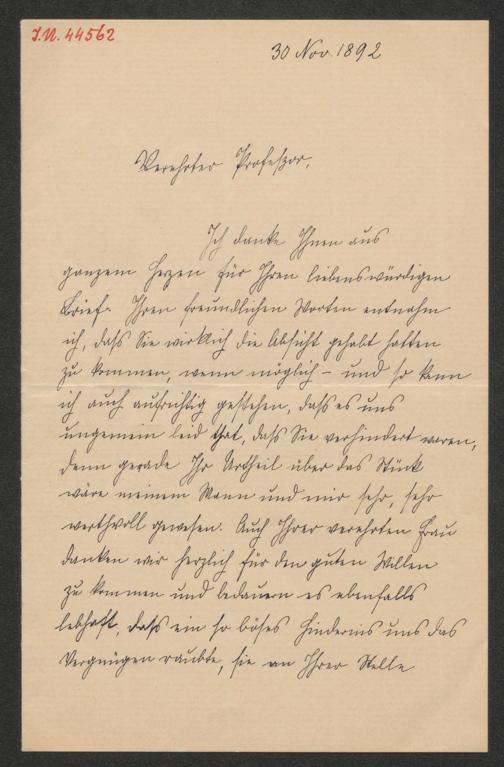 I.N. 44562
30 Nov. 1892
Verehrter Professor,
Ich danke Ihnen aus
ganzem Herzen für Ihren liebenswürdigen
Brief. Ihren freundlichen Worten entnahm
ich, daſs Sie wirklich die Absicht gehabt hatten
zu kommen, wenn möglich – und so kann
ich auch aufrichtig gestehen, daſs es uns
ungemein leid that, daſs Sie verhindert waren,
denn gerade Ihr Urtheil über das Stück
wäre meinem Mann und mir sehr, sehr
werthvoll gewesen. Auch Ihrer verehrten Frau
danken wir herzlich für den guten Willen
zu kommen und bedauern es ebenfalls
lebhaft, daſs ein so böses Hinderniss uns das
Vergnügen raubte, sie an Ihrer Stelle